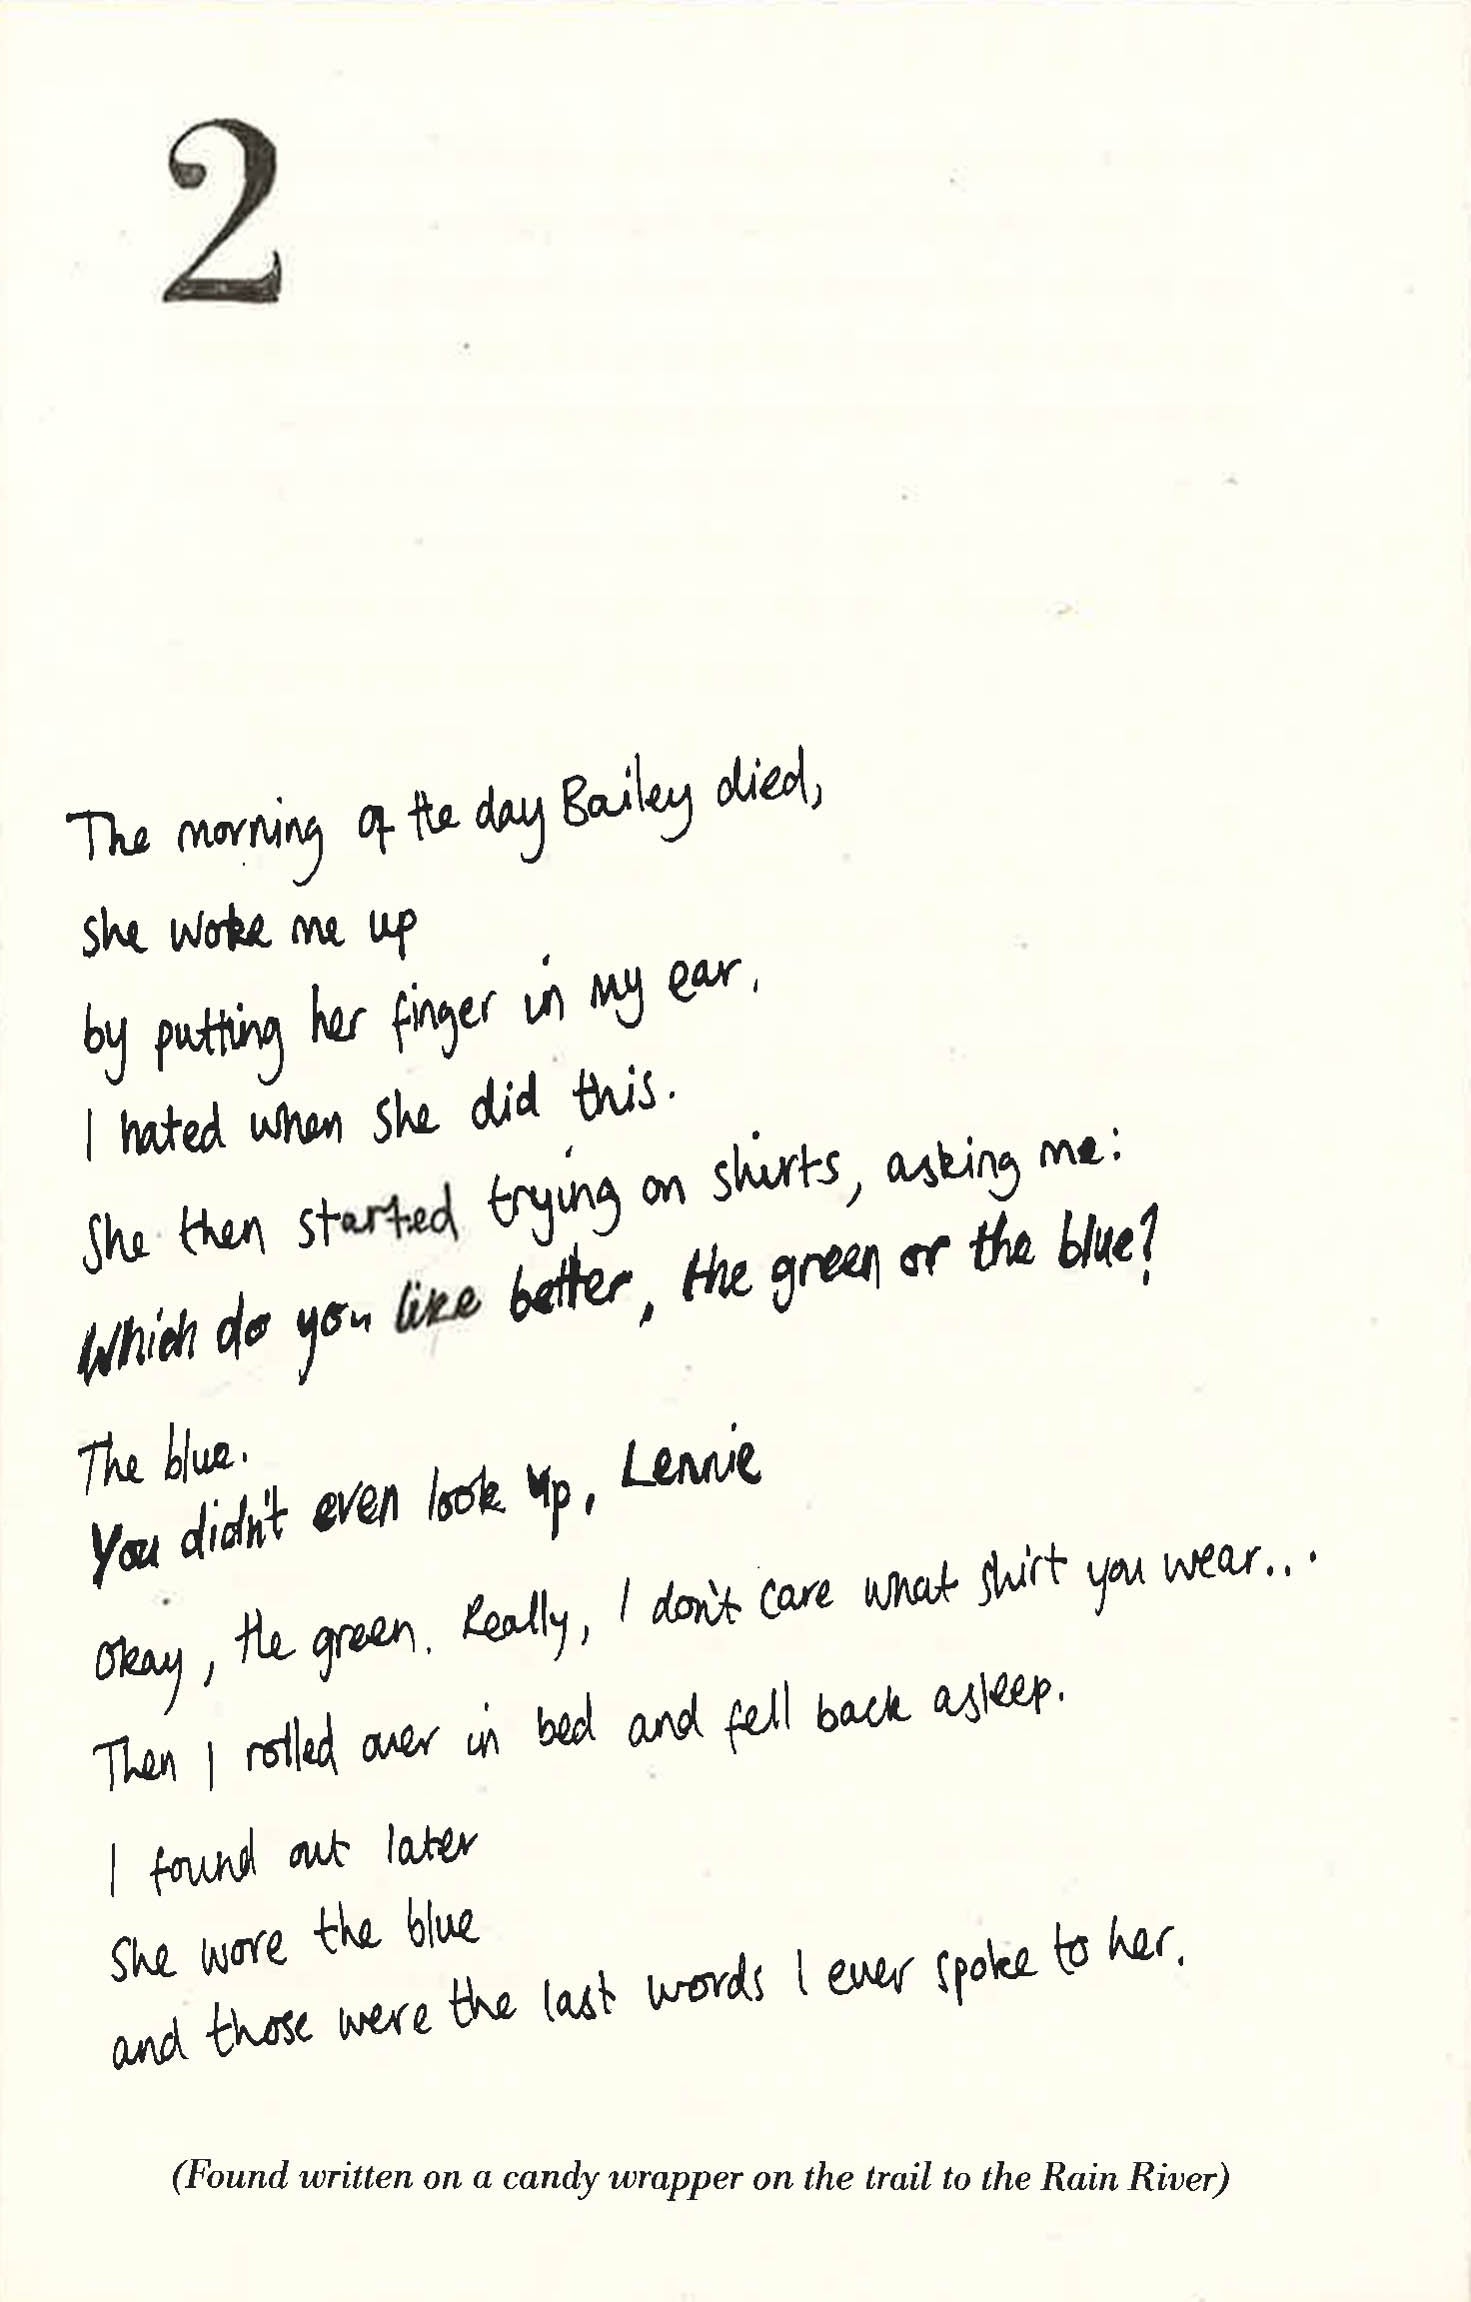 2
The morning of the day Bailey died,
she woke me up
by putting her finger in my ear.
I hated when she did this.
She then started trying on shirts, asking me:
Which do you like better, the green or the blue?
The blue.
You didn't even look up, Lennie
Okay, the green. Really, I don't care what shirt you wear...
Then I rolled over in bed and fell back asleep.
I found out later
She wore the blue
and those were the last words I ever spoke to her.
(Found written on a candy wrapper on the trail to the Rain River)